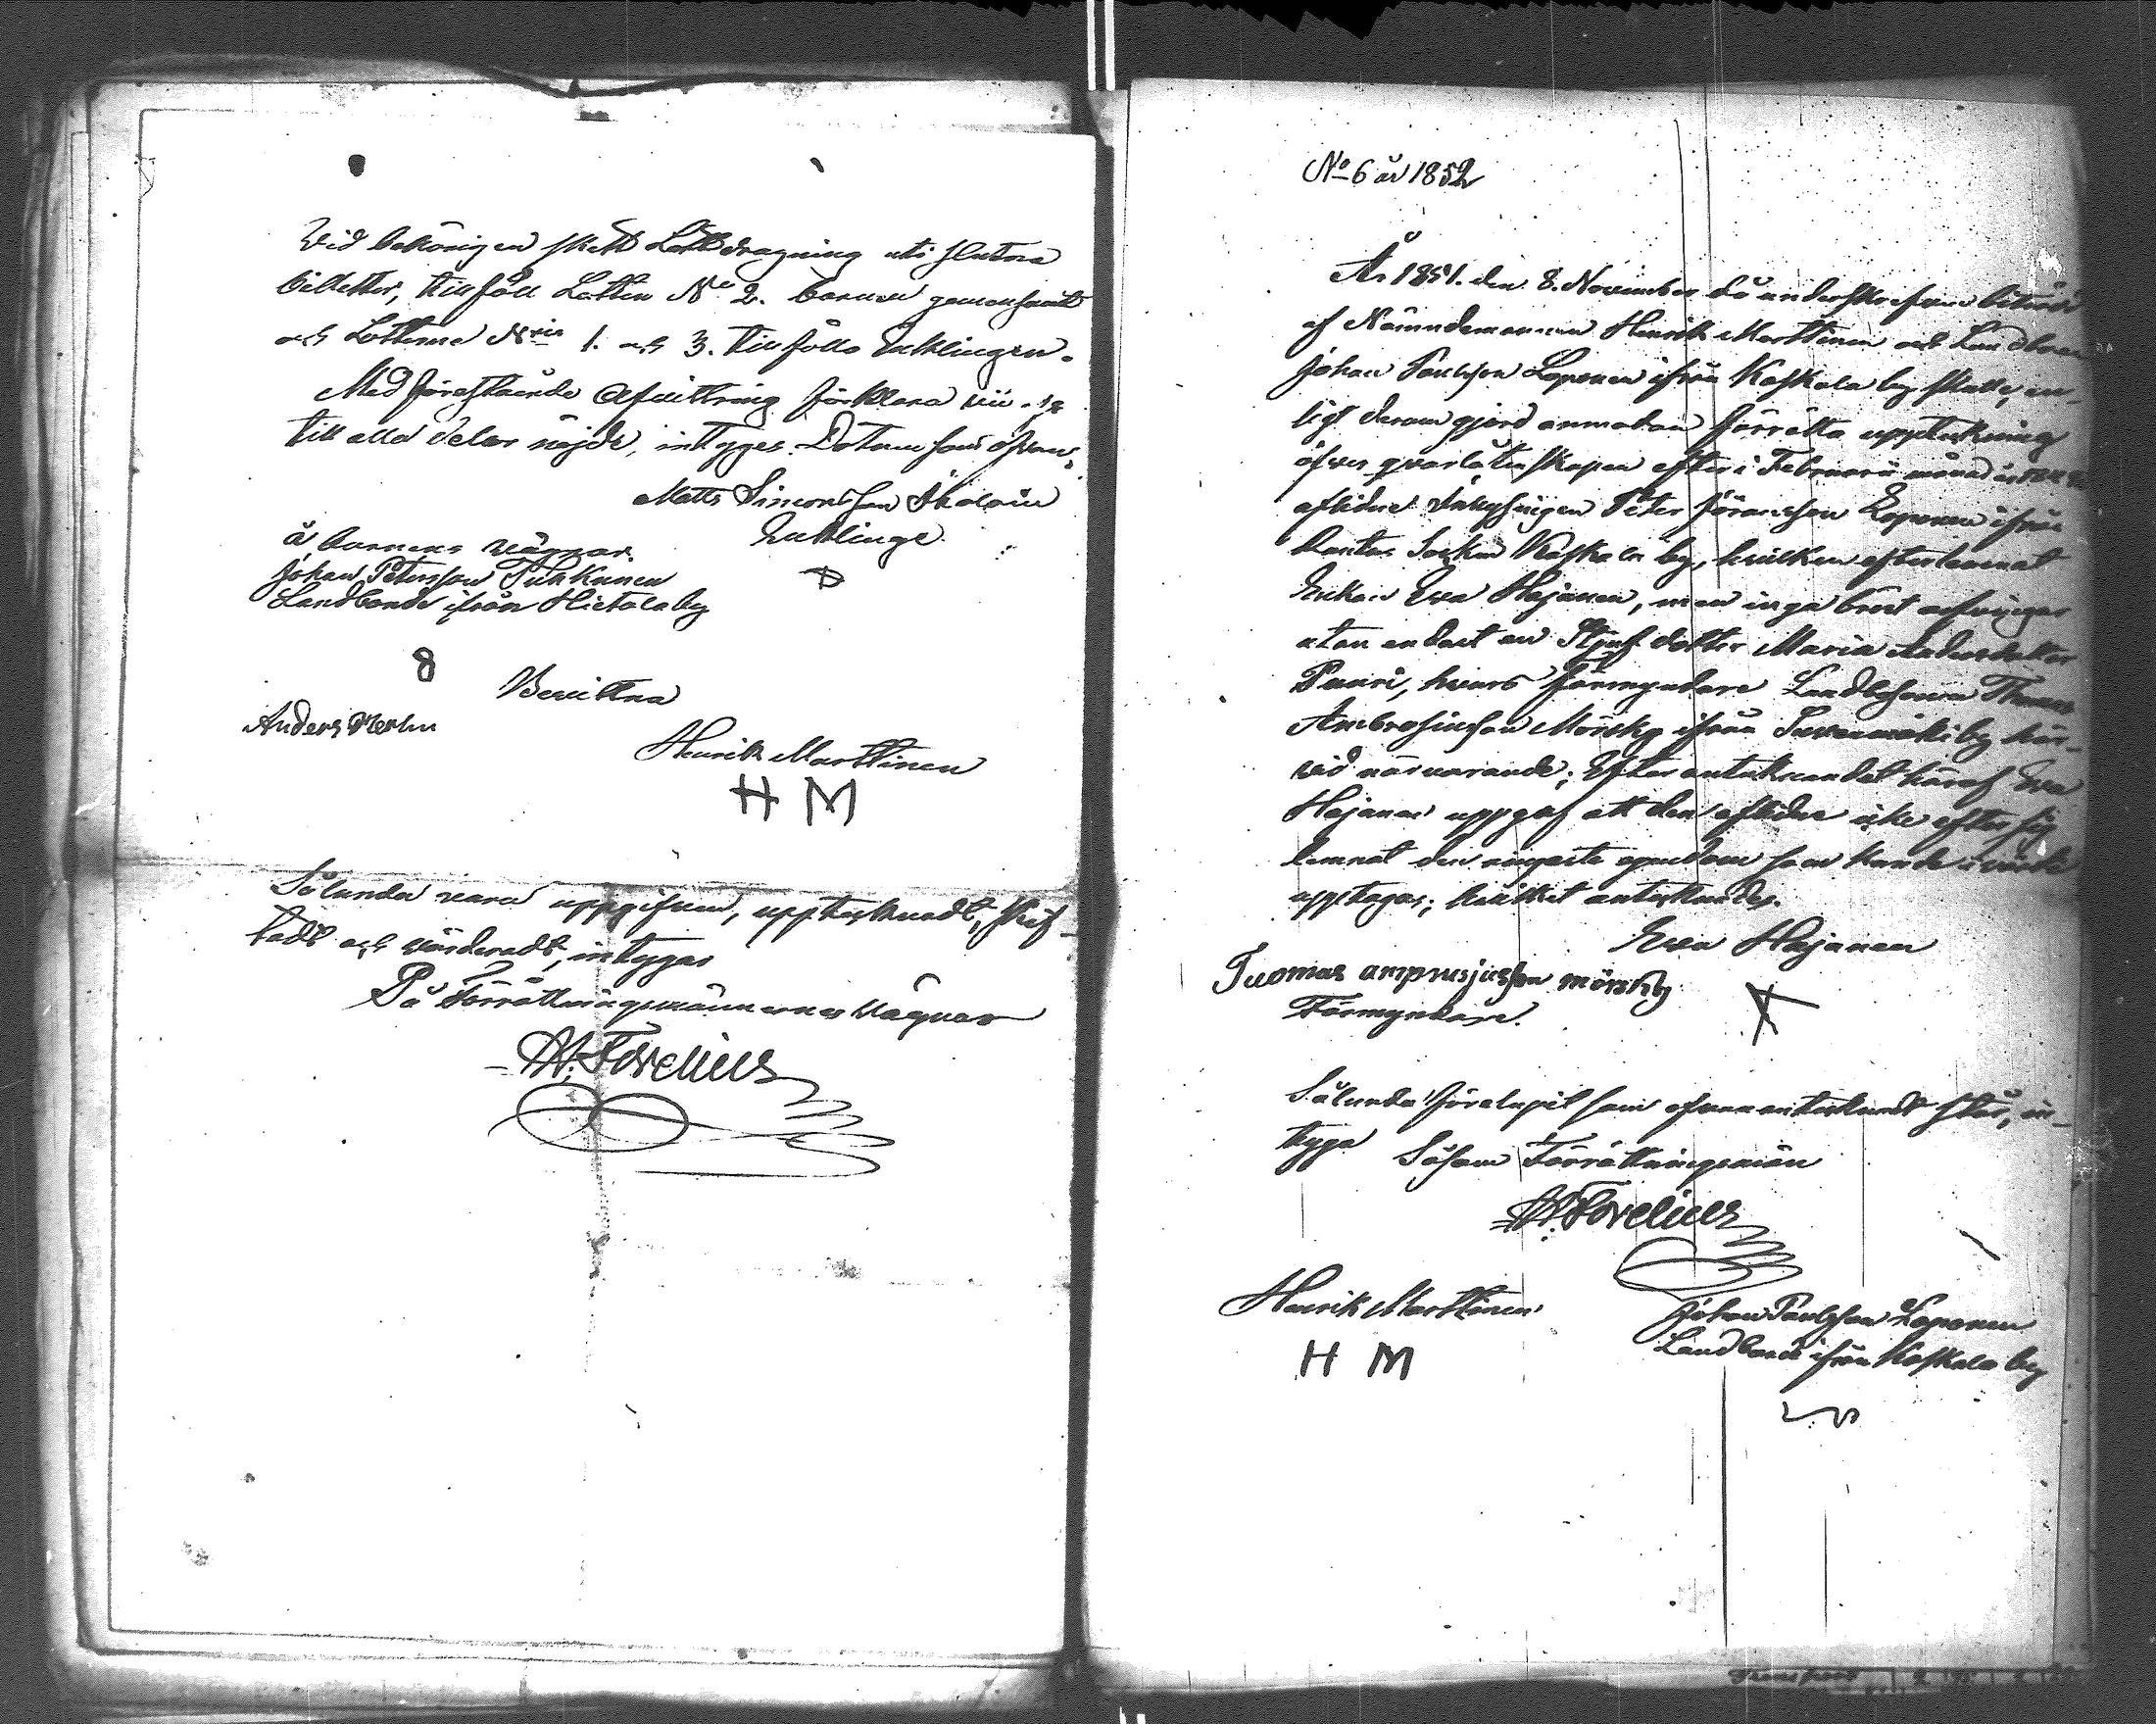 Vid behörigen skett Lottdragning uti slutna
billetter, tillföll Lotten No 2. barnen gemensamt
och Lotterne N:ris 1. och 3. tillföllo Enklingen.
Med förestående afvittring förklara vii oss
till alla delar nöjde, intygges. Datum som ofvan,
Matts Simonsson Ikoläin
Enklinge.
å barnens vägnar
Johan Petersson Tuhkunen
Landbonde ifrån Hietala by
Bevittna
Anders
Henrik Marttinen
H M
Sålunda vara uppgifvne, upptecknadt, skif-
tadt och värderadt, intygar
På Förrättningsmännernes vägnar
Forelius
No 6 år 1852
År 1851. den 8. November då underskrefne biträdd
af Nämndemannen Henrik Marttinen och Landbonden
Johan Paulsson Loponen ifrån Kaskala by skulle, en-
ligt derom gjord anmodan förrätta uppteckning
öfver qvarlåtenskapen efter i Februarii månad
aflidne Peter Jöransson Loponen ifrån
Socken Kaskala by, hvilken efterlemnat
Enkan Eva Hajanen, men inga bröst arfvingar
utan endast en Stjuf dotter Maria Andersdotter
hvars Förmyndare Landbonden Thomas
Ambrosiusson Mörsky ifrån by här-
vid närvarande; Efter antecknandet häraf Eva
Hajanen uppgaf att den aflidne icke efter sig
lemnat den ringaste egendom som kunde i värde
upptagas; hvilket antecknades.
Eva Hajanen
Tuomas amprusjusson mörsky
Förmyndare.
Sålunda förelupit som ofvan antecknadt står, in-
tyga Såsom Förrättningsmän
Forelius
Henrik Marttinen
H M
Johan Paulsson Loponen
Landbonde ifrån Kaskala by